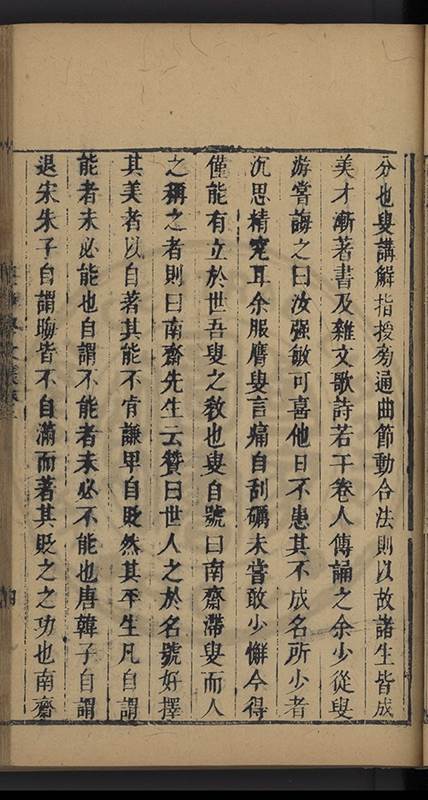 分也叟講解指授旁通曲節動合法則以故諸生皆成
美才漸著書及雜文歌詩若干卷人傳誦之余少從叟
游嘗誨之曰汝强敏可喜他日不患其不成名所少者
沉思精究耳余服膺叟言痛自刮礪未嘗敢少懈今得
僅能有立於世吾叟之教也叟自號曰南齋滯叟而人
之稱之者則曰南齋先生云贊曰世人之於名號好擇
其美者以自著其能不肯謙卑自貶然其平生凡自謂
能者未必能也自謂不能者未必不能也唐韓子自謂
退宋朱子自謂晦皆不自滿而著其貶之之功也南齋
四